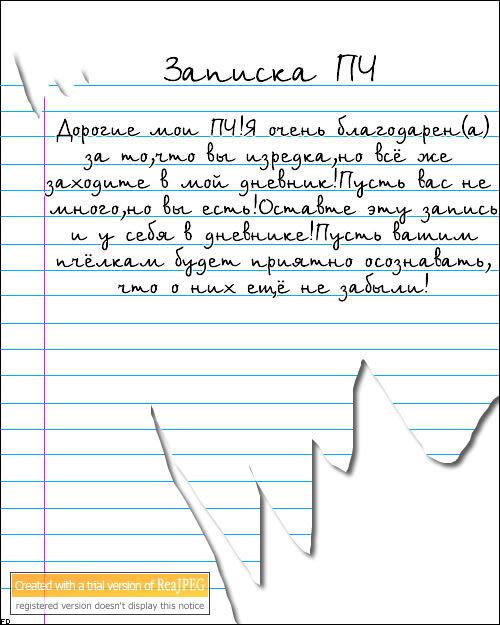 Записка ПЧ
Дорогие мои ПЧ!Я очень благодарен(а)
за то,что вы изредка,но всё же
заходите в мой дневник!Пусть вас не
много,но вы есть!Оставте эту запись
и у себя в дневнике!Пусть вашим
пчёлкам будет приятно осознавать,
что о них ещё не забыли!
Created with a trial version of ReaJPEG
registered version doesn't display this notice
FD